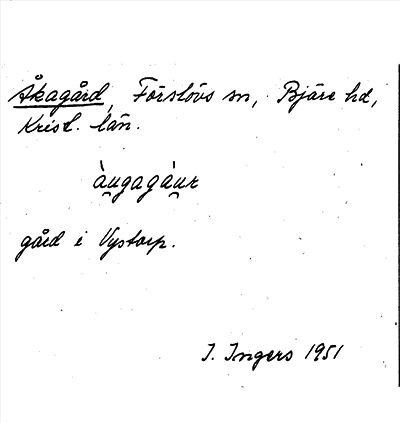 Åkagård, Förslövs sn, Bjäre hd,
Krist. län.
àu̯gagàu̯r
gård i Vystorp.
I. Ingers 1951